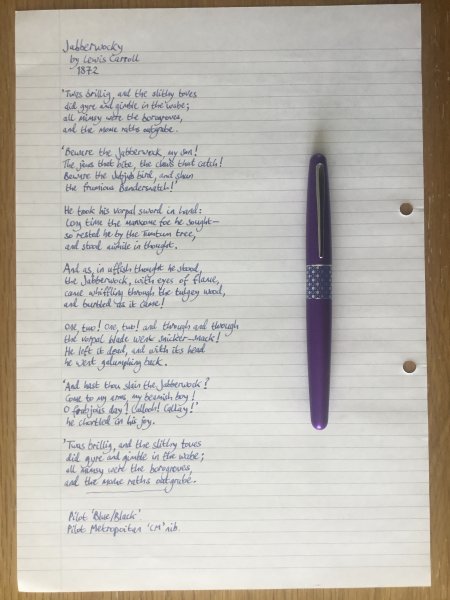 Jabberwocky
by Lewis Carroll
1872
'Twas brillig, and the slithy toves
did gyre and gimble in the wabe;
all mimsy were the borogroves,
and the mome raths outgrabe.
'Beware the Jabberwock, my son!
The jaws that bite, the claws that catch!
Beware the Jubjub bird, and shun
the frumious Bandersnatch!'
He took his vorpal sword in hand:
Long time the manxome foe he sought—
so rested he by the Tumtum tree,
and stood awhile in thought.
And as, in uffish thought he stood,
the Jabberwock, with eyes of flame,
came whiffling through the tulgey wood,
and burbled as it came!
One, two! One, two! and through and through
the vorpal blade went snicker-snack!
He left it dead, and with its head
he went galumphing back.
'And hast thou slain the Jabberwock?
Come to my arms, my beamish boy!
O frabjous day! Callooh! Callay!'
he chortled in his joy.
'Twas brillig, and the slithy toves
did gyre and gimble in the wabe;
all mimsy were the borogroves,
and the mome raths outgrabe.
Pilot 'Blue/Black'
Pilot Metropolitan 'CM' nib.